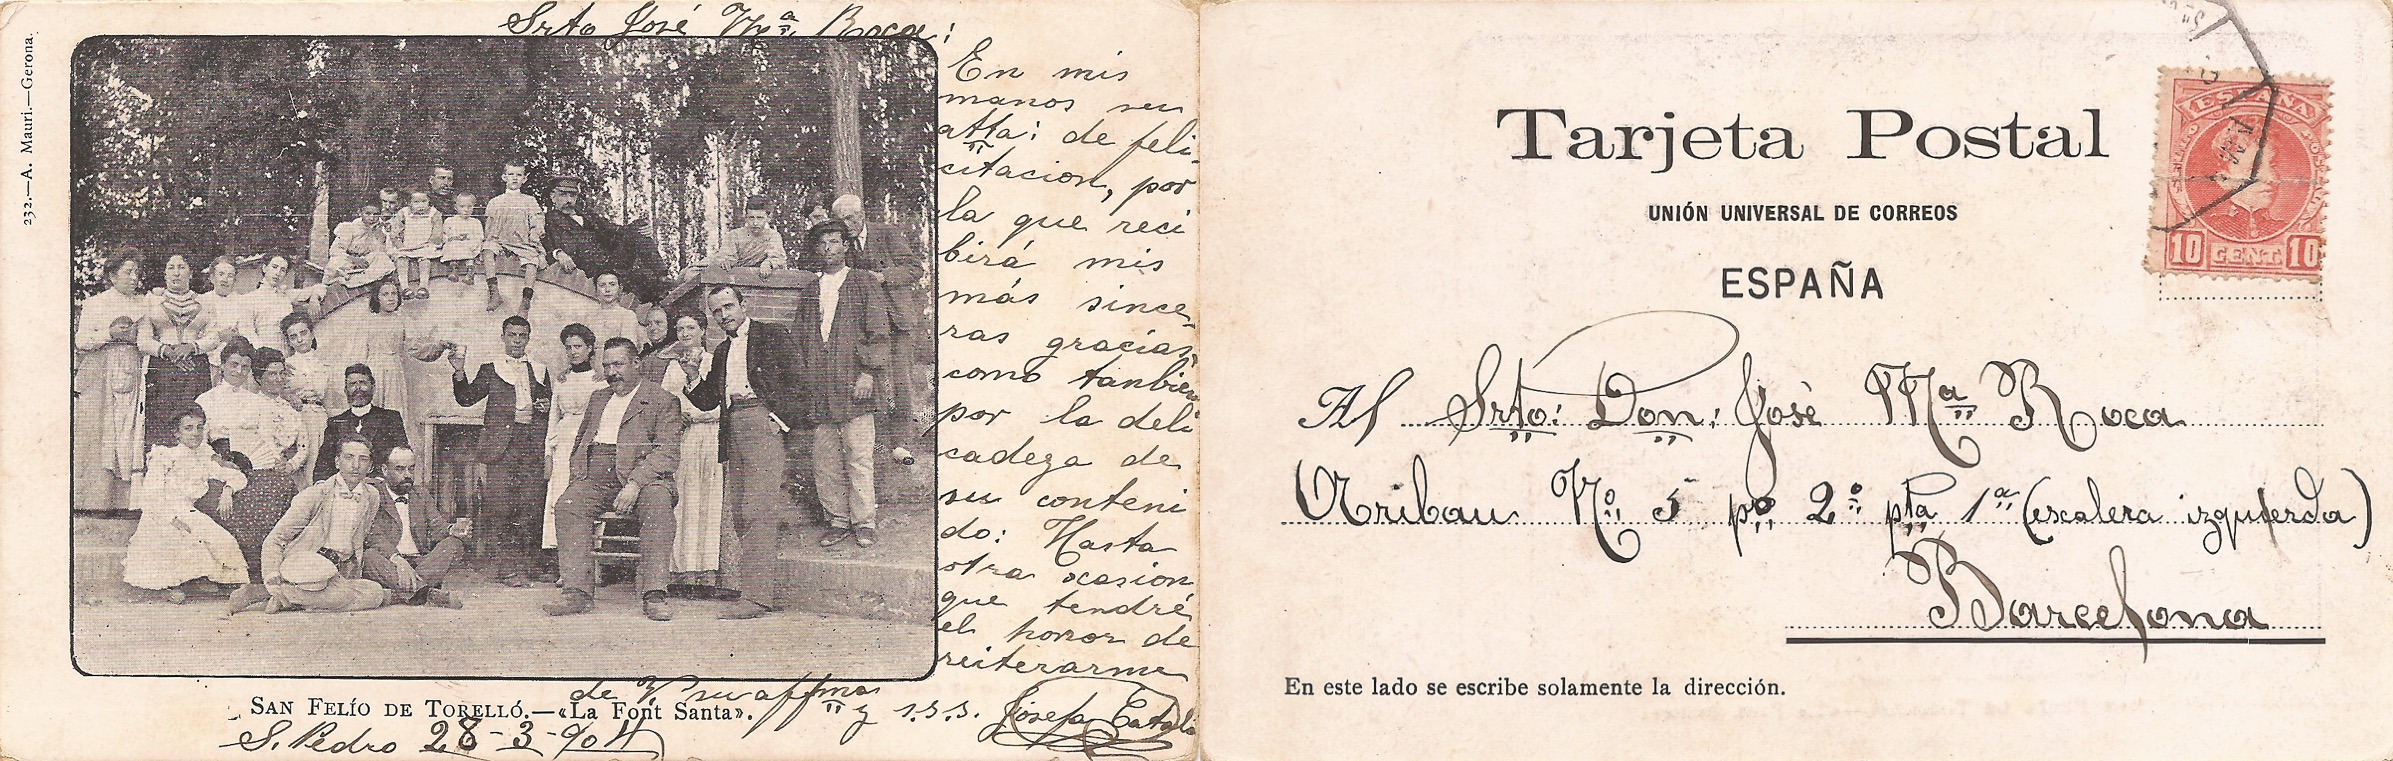 232.—A. Mauri.—Gerona.
Srto José Mª Roca:
En mis
manos su
atta: de feli-
citacion, por
la que reci
birá mis
más since-
ras gracias,
como tanbien
por la deli
cadeza de
su conteni
do: Hasta
otra ocasion
que tendré
el honor de
reiterarme
de V. su affma
y s.s.s. Josefa Catalá
SAN FELÍO DE TORELLÓ.—«La Font Santa».
S. Pedro 28-3-904
Tarjeta Postal
UNIÓN UNIVERSAL DE CORREOS
ESPAÑA
ESPAÑA
10 CENT. 10
Al Srto: Don: José Mª Roca
Aribau Nº 5 pº 2º pta 1ª (escalera izquierda)
Barcelona
En este lado se escribe solamente la dirección.